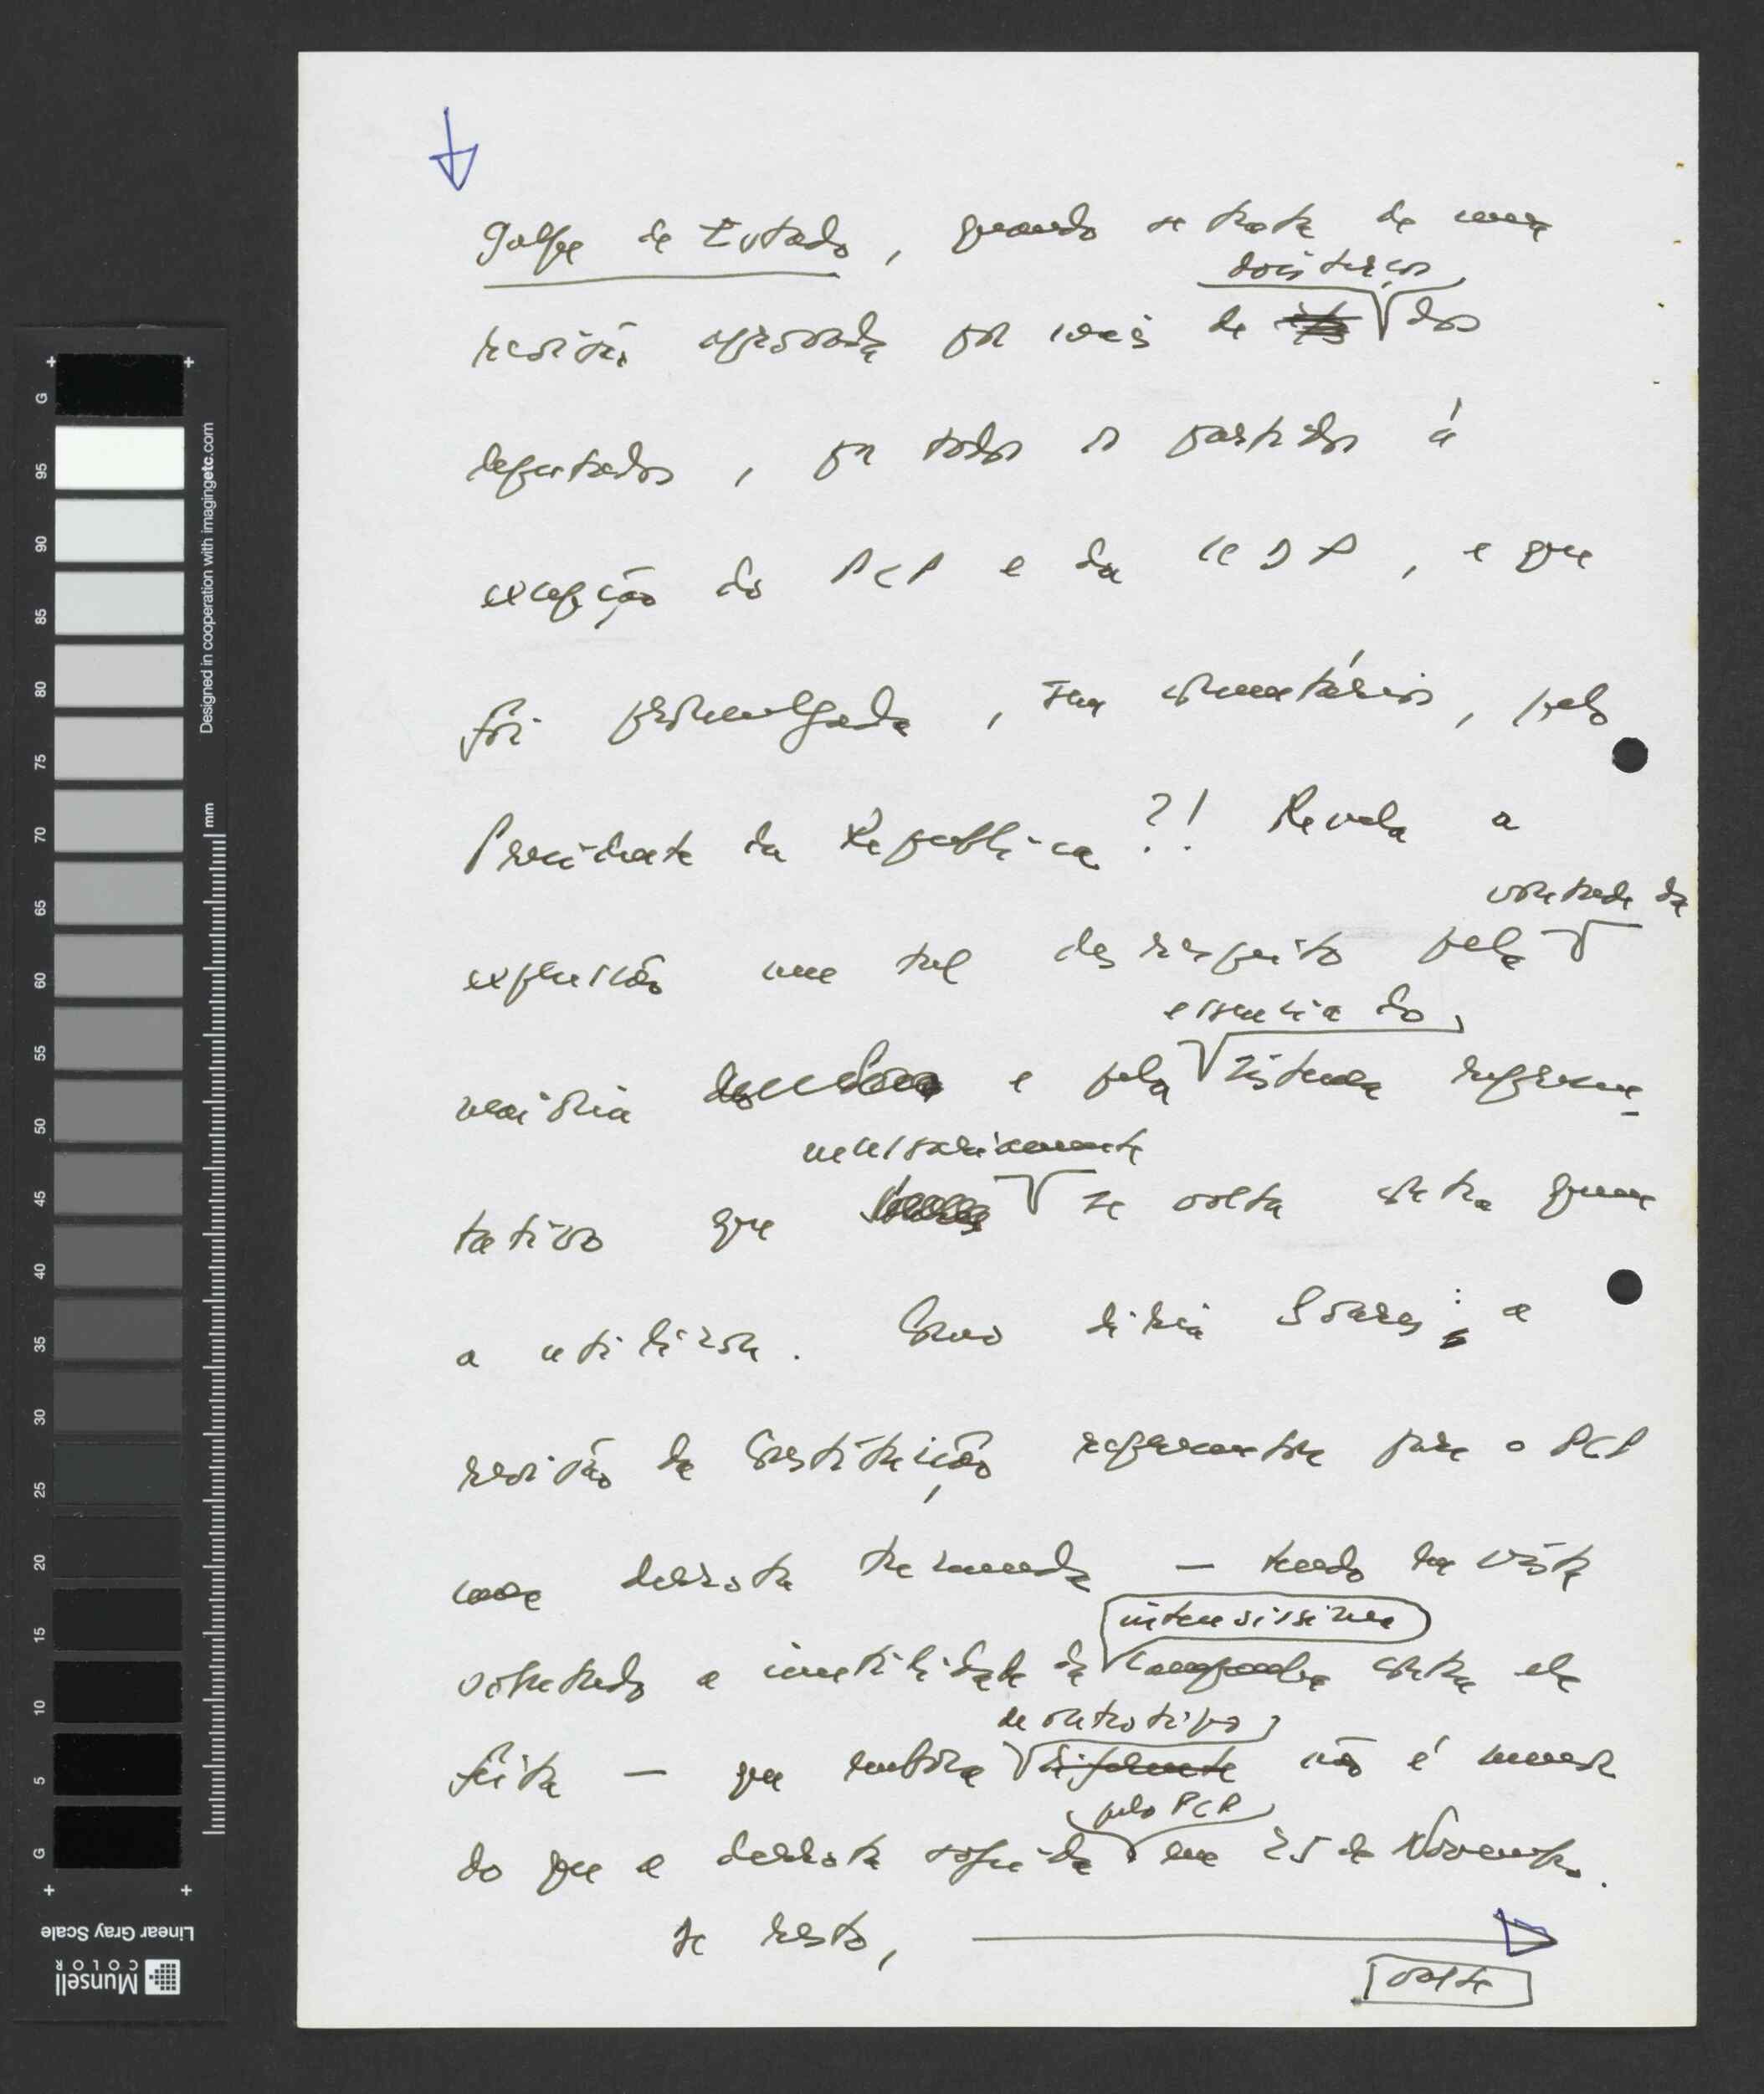 Golpe de Estado, quando se trata de uma
dois terços
revisão aprovada por mais de dos
deputados, por todos os partidos à
excepção do PCP e da UDP, e que
foi promulgada, sem comentários, pelo
Presidente da República?! Revela a
vontade da
expressão um tal desrespeito pela
essencia do
maioria e pela sistema represen-
necessariamente
tativo que se volta contra quem
a utilizou. Como diria Soares: a
revisão da Constituição representou para o PCP
uma derrota tremenda — tendo em vista
intensissima
sobretudo a inutilidade da campanha contra ela
feita — que embora diferente não é menor
de outro tipo
pelo PCP
do que a derrota sofrida em 25 de Novembro.
De resto,
volte
G 95 90 85 80 75 70 65 60 55 50 45 40 35 30 25 20 15 10 5 G
Designed in cooperation with imagingetc.com
mm
Linear Gray Scale
Munsell
COLOR